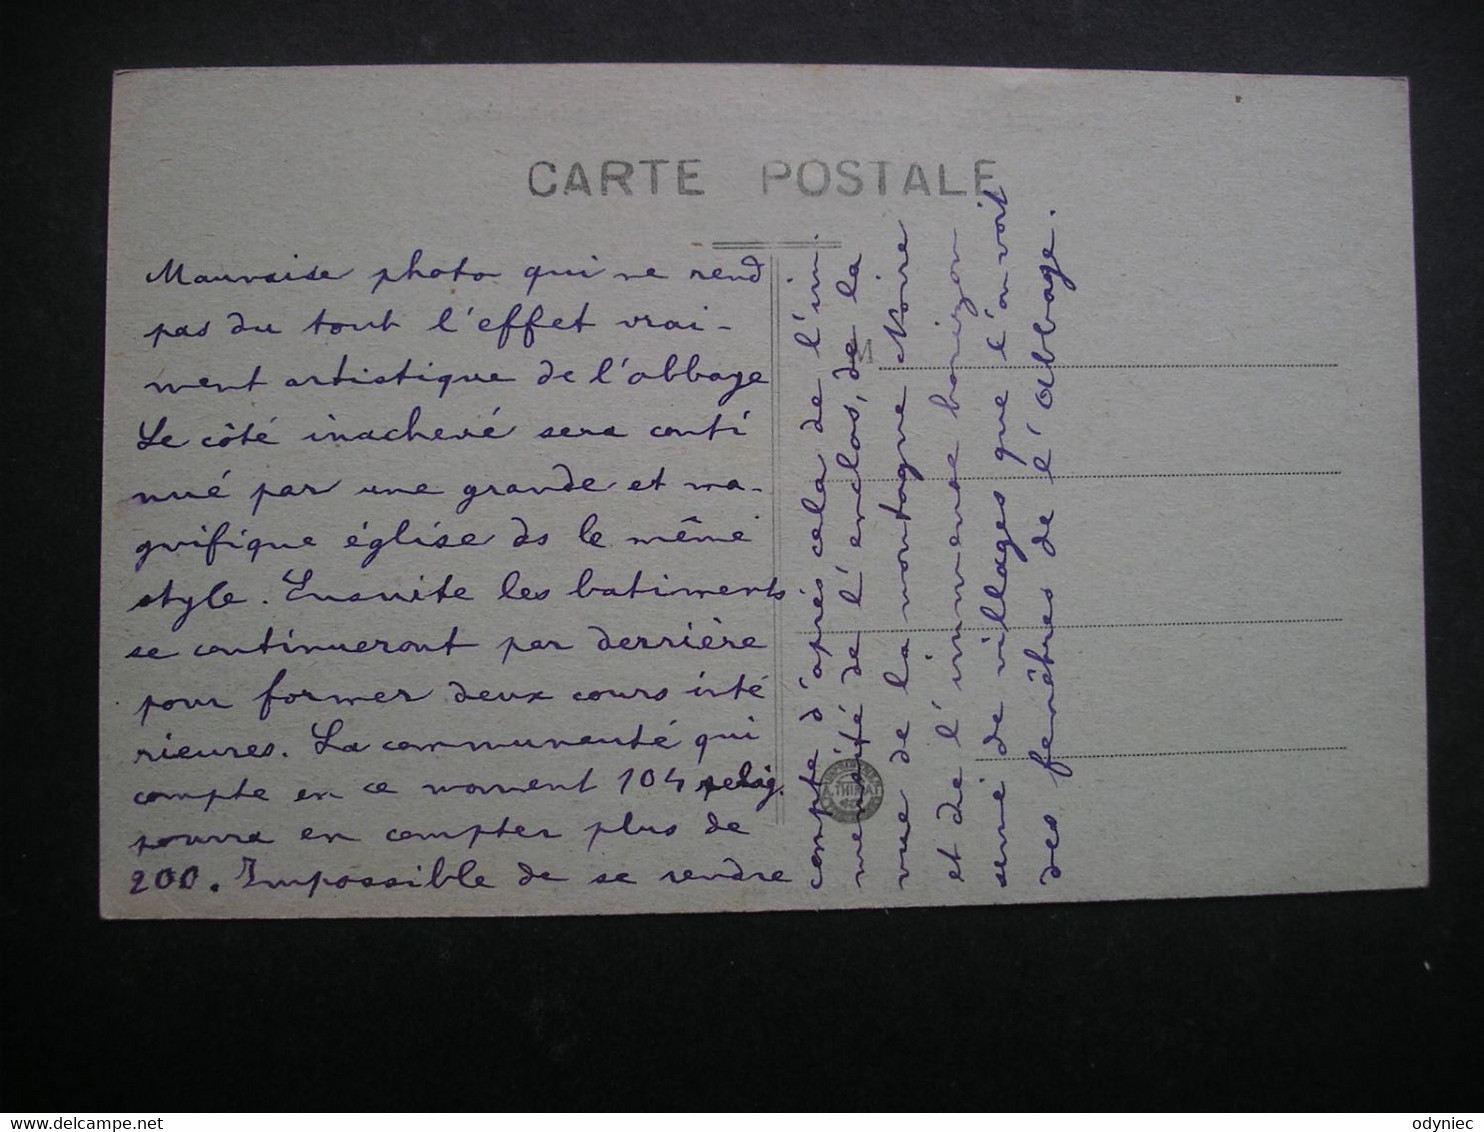 CARTE POSTALE
Mauvaise photo qui ne rend
pas du tout l'effet vrai-
ment artistique de l'abbaye
Le côté inachevé sera conti
nué par une grande et ma-
gnifique église ds le même
style. Ensuite les batiments
se continueront par derrière
pour former deux cours inté
rieures. La communauté qui
compte en ce moment 104 relig.
pourra en compter plus de
200. Impossible de se rendre
compte d'après cela de l'im
mensité de l'enclos, de la
vue de la montagne Noire
et de l'immense horizon
semé de villages que l'on voit
des fenêtres de l'Abbaye.
M
A. THIRIAT
odyniec